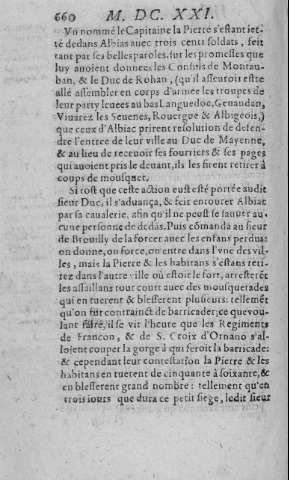 660 M. DC. XXI.
Vn nommé le Capitaine la Pierre s'estant iet-
té dedans Albias auec trois cents soldats, feit
tant par ses belles paroles, sur les promesses que
luy auoient donnees les Consuls de Montau-
ban, & le Duc de Rohan, (qu'il asseuroit estre
allé assembler en corps d'armee les troupes de
leur party leuees au bas Languedoc, Geuaudan,
Viuarez les Seuenes, Rouergue & Albigeois,)
que ceux d'Albiac prirent resolution de defen-
dre l'entree de leur ville au Duc de Mayenne,
& au lieu de receuoir ses fourriers & ses pages
qui auoient pris le deuant, ils les firent retirer à
coups de mousquet.
Si tost que ceste action eust esté portée audit
sieur Duc, il s'aduança, & feit entourer Albiac
par sa caualerie, afin qu'il ne peust se sauuer au-
cune personne de dedãs. Puis cõmanda au sieur
de Brouilly de la forcer auec les enfans perdus:
on donne, on force, on entre dans l'vne des vil-
les, mais la Pierre & les habitans s'estans reti-
rez dans l'autre ville où estoit le fort, arresterẽt
les assaillans tout court auec des mousquetades
qui en tuerent & blesserent plusieurs: tellemẽt
qu'on fut contrainct de barricader; ce que vou-
lant faire, il se vit l'heure que les Regiments
de Francon, & de S. Croix d'Ornano s'al-
loient couper la gorge à qui feroit la barricade:
& cependant leur contestation la Pierre & les
habitans en tuerent de cinquante à soixante, &
en blesserent grand nombre: tellement qu'en
trois iours que dura ce petit siege, ledit sieur